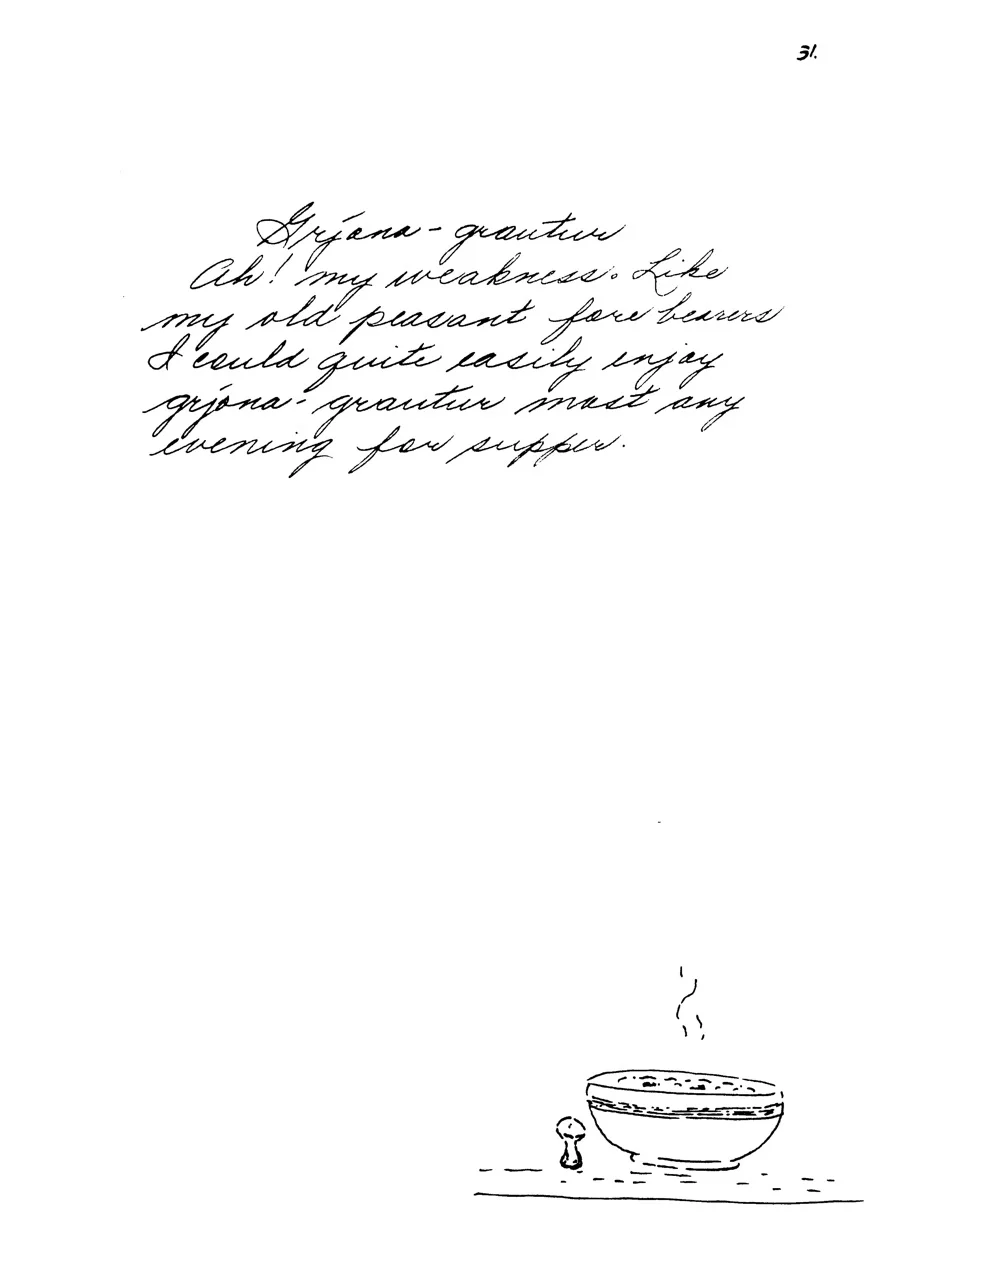 31.
Grjóna-grautur
Ah! my weakness. Like
my old peasant fore bearers
I could quite easily enjoy
grjóna-grautur most any
evening for supper.